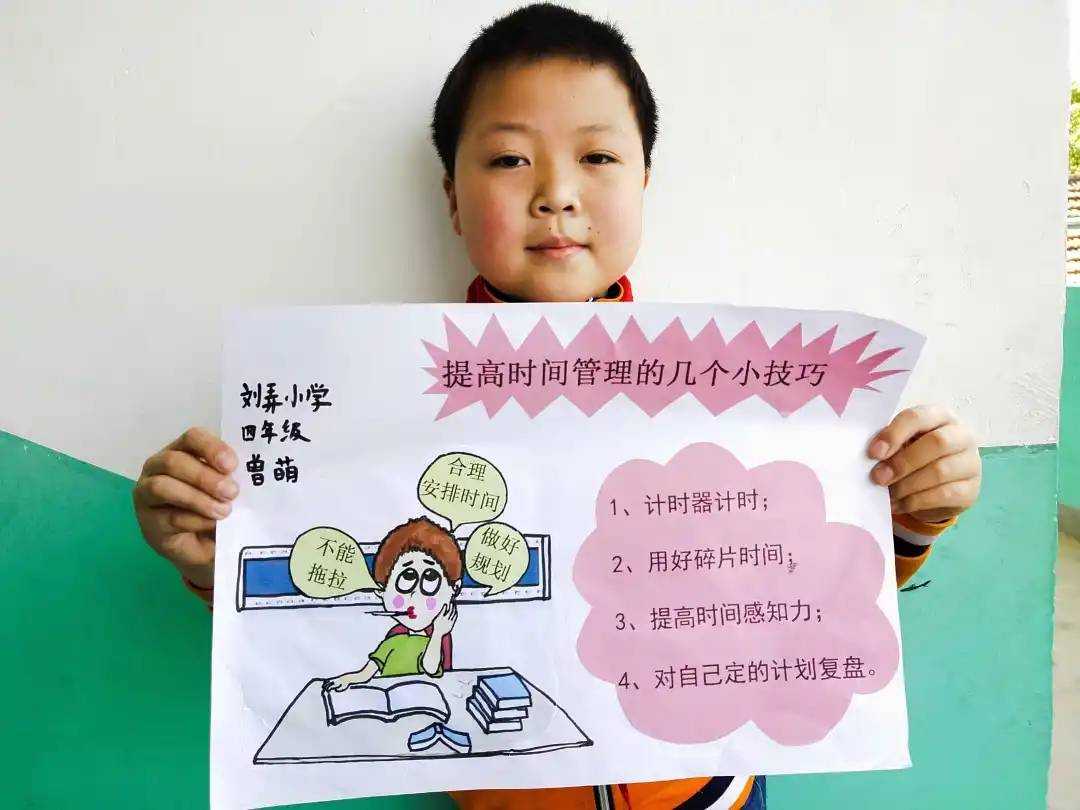 提高时间管理的几个小技巧
刘弄小学
四年级
曾萌
合理
安排时间
不能
拖拉
做好
规划
1、计时器计时；
2、用好碎片时间；
3、提高时间感知力；
4、对自己定的计划复盘。